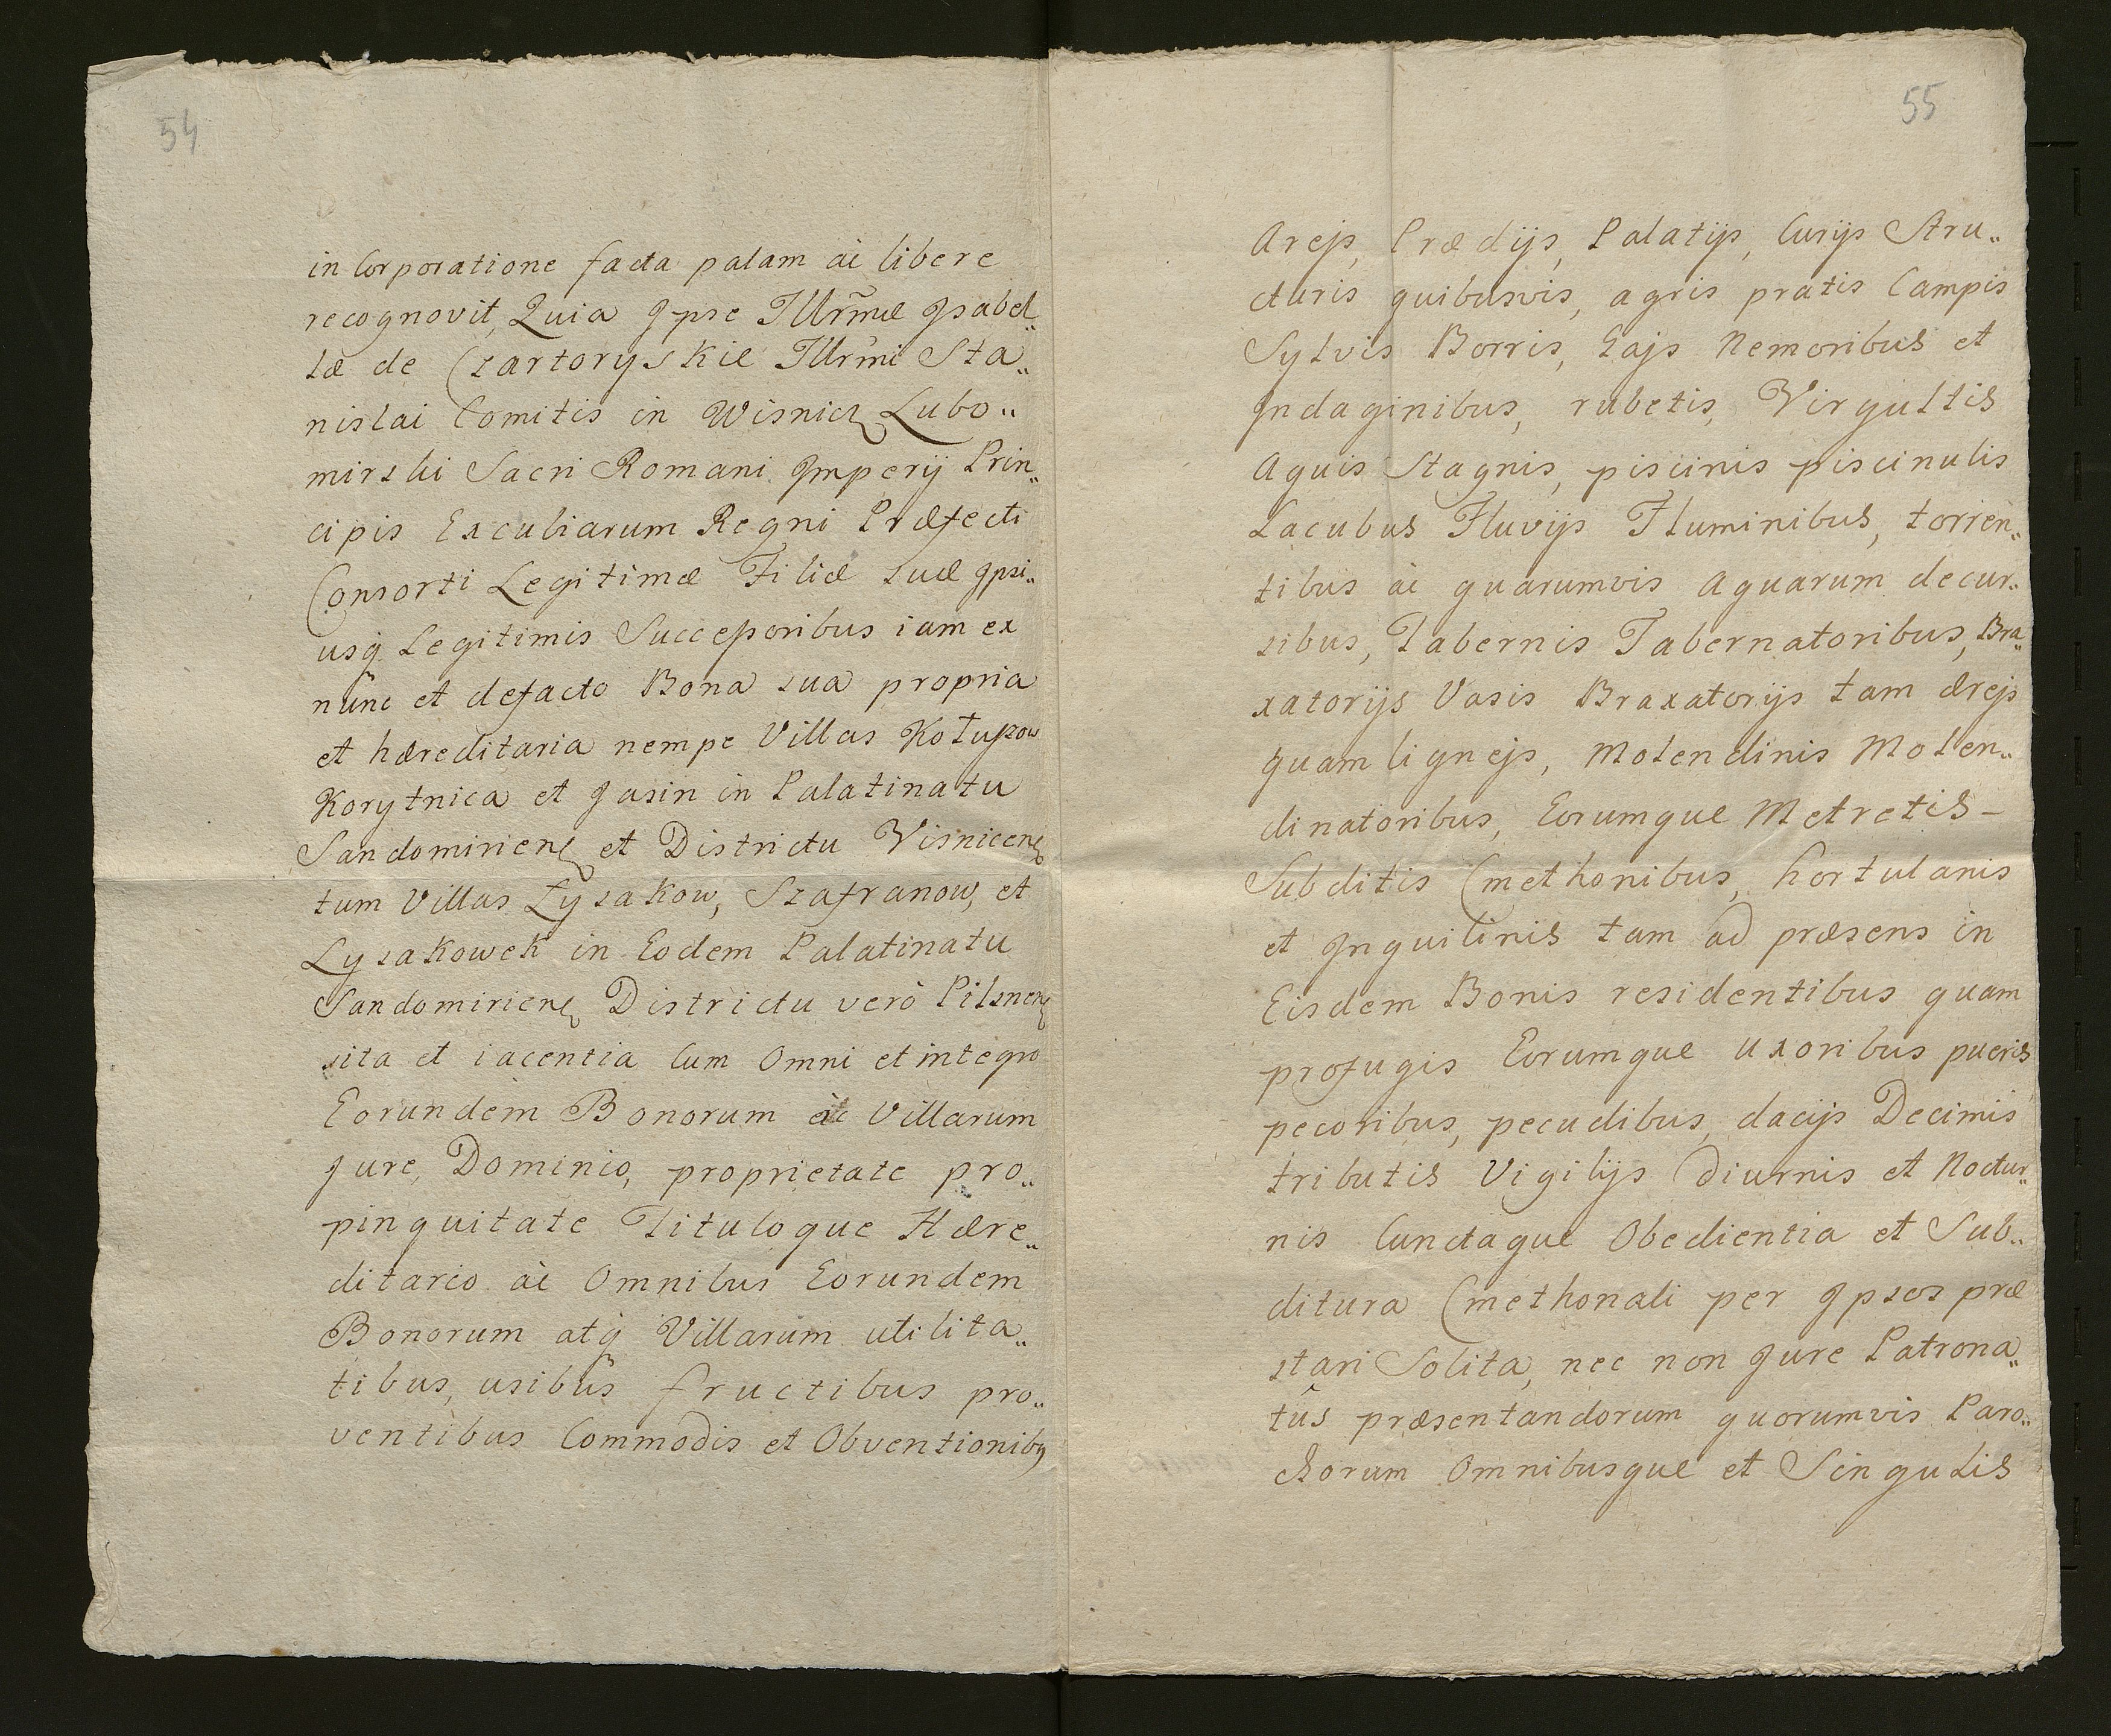 54
in Corporatione facta palam ac libere
recognovit, Quia Ipse Illrmæ Isabel„
læ de Czartoryskie Illrmi Sta„
nislai Comitis in Wisnicz Lubo„
mirski Sacri Romani Imperij Prin„
cipis Excubiarum Regni Præfecti
Consorti Legitimæ Filiæ suæ Ipsi„
usq. Legitimis Successoribus iam ex
nûnc et defacto Bona sua propria
et hæreditaria nempe Villas
Korytnica et Jasin in Palatinatu
Sandomirien et Districtu Visnicen
tum Villas Łysakow, Szafranow, et
Lysakowek in Eodem Palatinatu
Sandomirien Districtu verò Pilsnen
sita et iacentia Cum Omni et integro
Eorundem Bonorum ac Villarum
Jure, Dominio, proprietate pro„
pinquitate Tituloque Hære„
ditario ac Omnibus Eorundem
Bonorum atq Villarum utilita„
tibus, usibûs fructibus pro„
ventibus Commodis et Obventionibq
55
Arejs, Prædijs, Palatijs, Curijs Stru„
cturis quibusvis, agris pratis Campis
Sylvis Borris, Gajs Nemoribus et
Indaginibus, rubetis, Virgultis
Aquis Stagnis, piscinis piscinulis
Lacubus Fluvijs Fluminibus, torren„
tibus ac quarumvis Aquarum decur„
sibus, Tabernis Tabernatoribus, Bra„
xatorijs Vasis Braxatorijs tam ærejs
quam lignejs, Molendinis Molen„
dinatoribus, Eorumque Metretis –
Subditis Cmethonibus, hortulanis
et Inquilinis tam ad præsens in
Eisdem Bonis residentibus quam
profugis Eorumque uxoribus pueris
pecoribus, pecudibus, dacijs Decimis
tributis Vigilijs Diurnis et Noctur„
nis Cunctaque Obedientia et Sub„
ditura Cmethonali per Ipsos præ
stari Solita, nec non Jure Patrona„
tûs præsentandorum quorumvis Paro„
chorum Omnibusque et Singulis